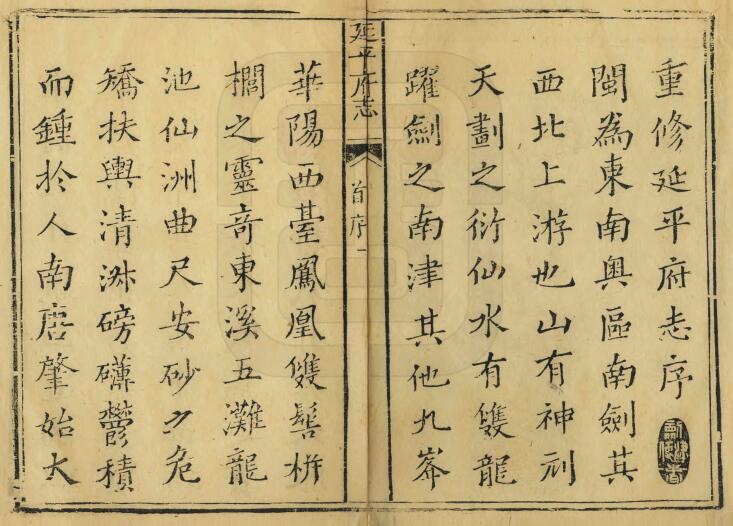 重修延平府志序
閩為東南奧區南劍其
西北上游也山有神刓
天劃之衍仙水有雙龍
躍劍之南津其他九峯
延平府志
首序一
華陽西臺鳳凰雙髻栟
櫚之靈竒東溪五灘龍
池仙洲曲尺安砂之危
矯扶輿清淑磅礴鬱積
而鍾扵人南唐肇始大